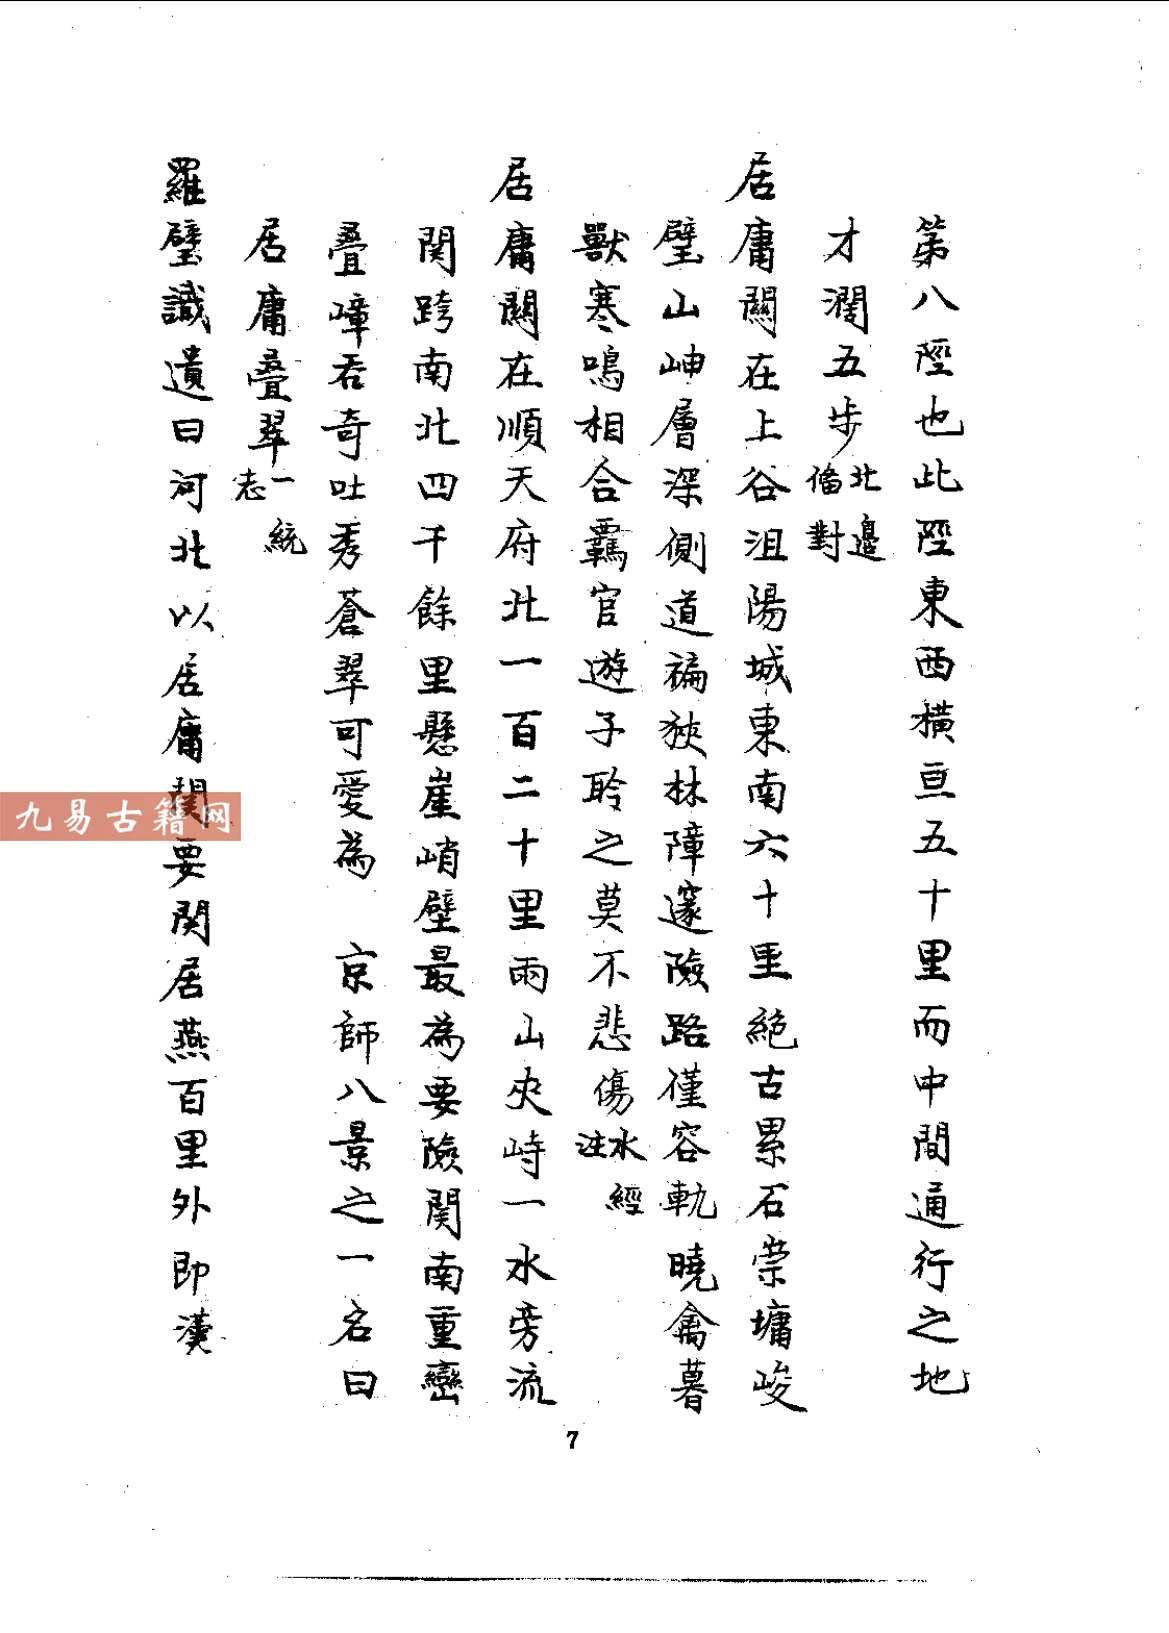 第八陘也此陘東西橫亘五十里而中間通行之地
才濶五步北邊備對
居庸關在上谷沮陽城東南六十里絕古累石崇墉峻
壁山岫層深側道褊狹林障邃險路僅容軌曉禽暮
獸寒鳴相合羈官遊子聆之莫不悲傷水經注
居庸關在順天府北一百二十里兩山夾峙一水旁流
関跨南北四千餘里懸崖峭壁最為要險関南重巒
疊嶂吞奇吐秀蒼翠可愛為 京師八景之一名曰
居庸疊翠一統志
羅璧識遺曰河北以居庸関要関居燕百里外即漢
九易古籍网
7